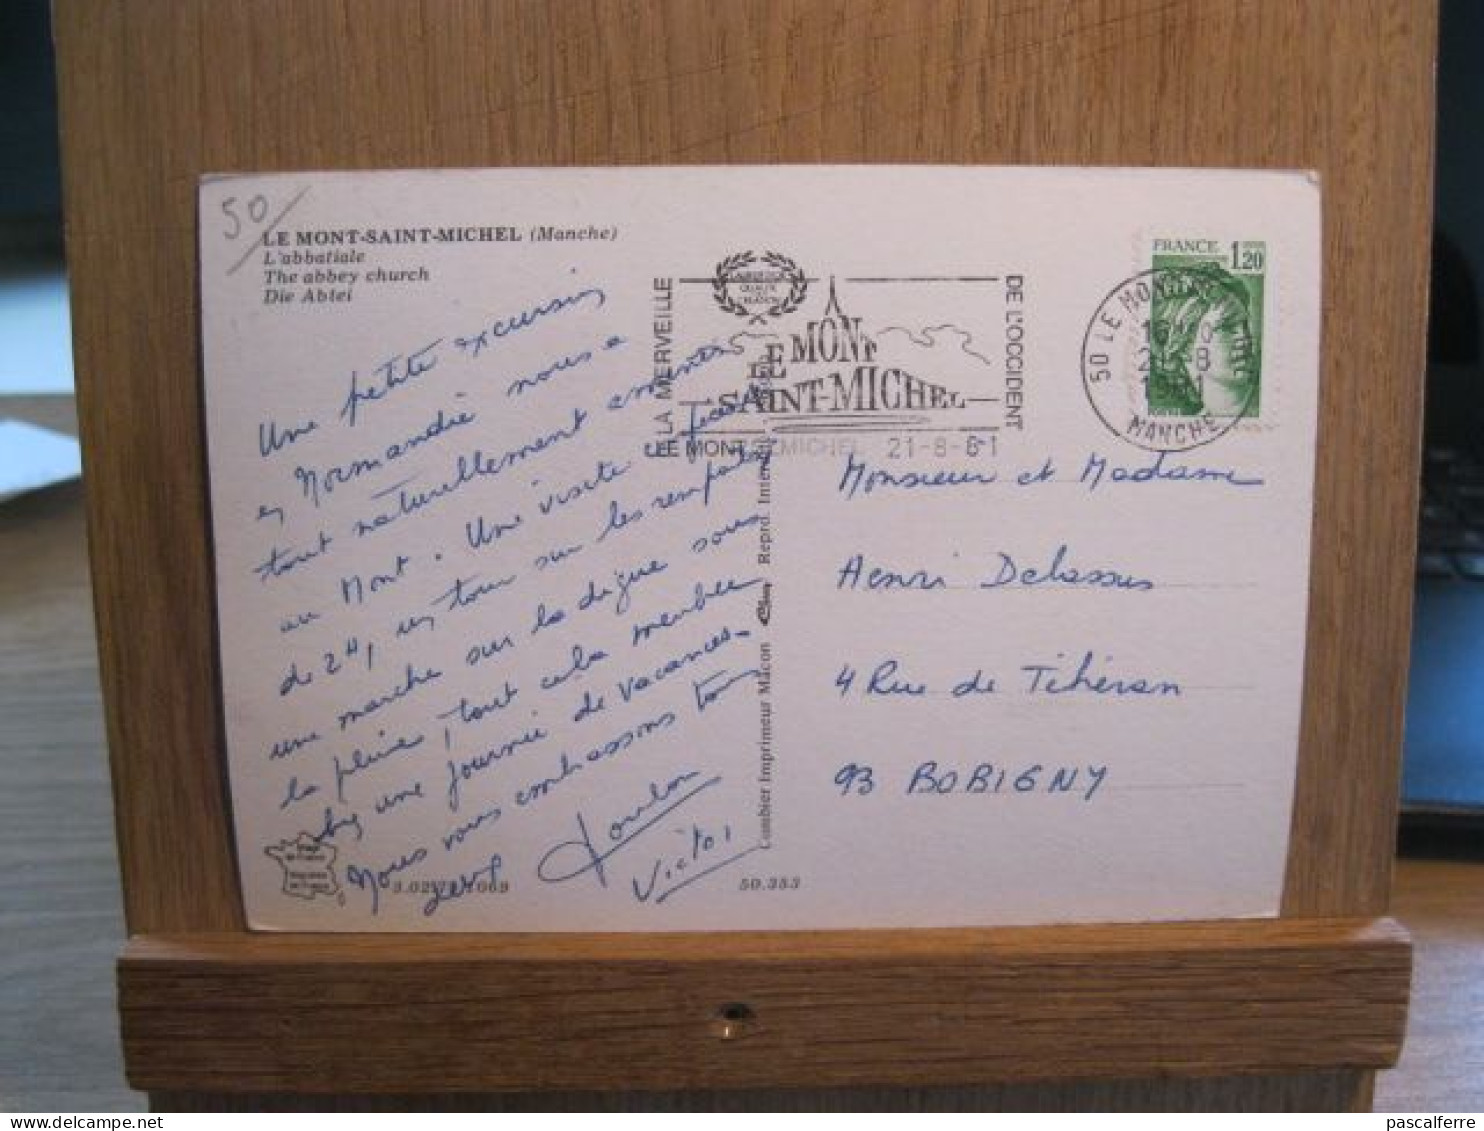 50
LE MONT-SAINT-MICHEL (Manche)
L'abbatiale
The abbey church
Die Abtei
Une petite excursion
en Normandie nous a
tout naturellement amenés
au Mont. Une visite
de 2H, un tour sur les remparts
une marche sur la digue sous
la pluie, tout cela meuble
une journée de vacances.
Nous vous embrassons tous
Victor
50.353
Combier Imprimeur Mâcon
LA MERVEILLE
LE MONT
SAINT-MICHEL
DE L'OCCIDENT
LE MONT ST MICHEL 21-8-81
FRANCE 1,20
50 LE MONT
MANCHE
Monsieur et Madame
Henri Delassus
4 Rue de Téhéran
93 BOBIGNY
pascalferre